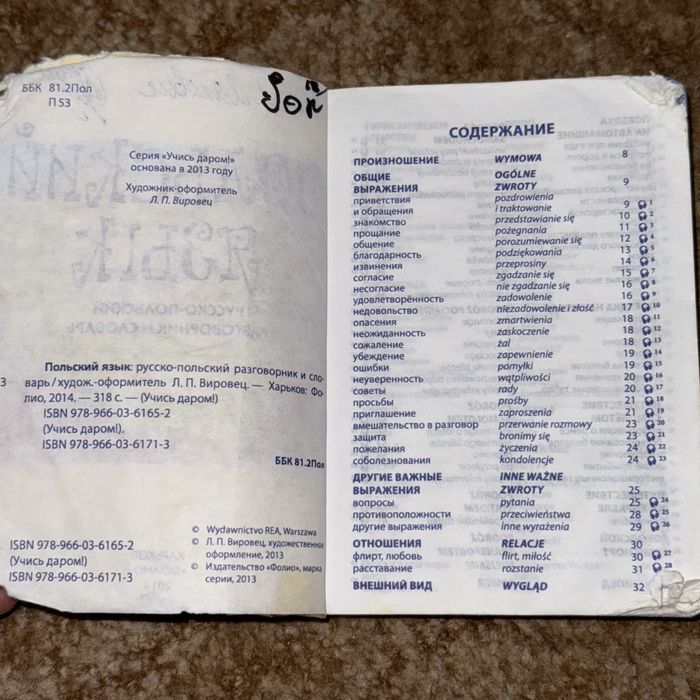 ББК 81.2Пол
П 53
Серия «Учись даром!»
основана в 2013 году
Художник-оформитель
Л. П. Вировец
Польский язык: русско-польский разговорник и сло-
варь / худож.-оформитель Л. П. Вировец. — Харьков: Фо-
лио, 2014. — 318 с. — (Учись даром!)
ISBN 978-966-03-6165-2
(Учись даром!).
ISBN 978-966-03-6171-3
ББК 81.2Пол
ISBN 978-966-03-6165-2
(Учись даром!)
ISBN 978-966-03-6171-3
© Wydawnictwo REA, Warszawa
© Л. П. Вировец, художественное
оформление, 2013
© Издательство «Фолио», марка
серии, 2013
СОДЕРЖАНИЕ
ПРОИЗНОШЕНИЕ WYMOWA 8
ОБЩИЕ OGÓLNE
ВЫРАЖЕНИЯ ZWROTY 9
приветствия pozdrowienia
и обращения i traktowanie 9 1
знакомство przedstawianie się 10 2
прощание pożegnania 11 3
общение porozumiewanie się 12 4
благодарность podziękowania 13 5
извинения przeprosiny 14 6
согласие zgadzanie się 15 7
несогласие nie zgadzanie się 16 8
удовлетворённость zadowolenie 16 9
недовольство niezadowolenie i złość 17 10
опасения zmartwienia 18 11
неожиданность zaskoczenie 18 12
сожаление żal 18 13
убеждение zapewnienie 19 14
ошибки pomyłki 19 15
неуверенность wątpliwości 20 16
советы rady 20 17
просьбы prośby 21 18
приглашение zaproszenia 21 19
вмешательство в разговор przerwanie rozmowy 23 20
защита bronimy się 23 21
пожелания życzenia 24 22
соболезнования kondolencje 24 23
ДРУГИЕ ВАЖНЫЕ INNE WAŻNE
ВЫРАЖЕНИЯ ZWROTY 25
вопросы pytania 25 24
противоположности przeciwieństwa 28 25
другие выражения inne wyrażenia 29 26
ОТНОШЕНИЯ RELACJE 30
флирт, любовь flirt, miłość 30 27
расставание rozstanie 31 28
ВНЕШНИЙ ВИД WYGLĄD 32